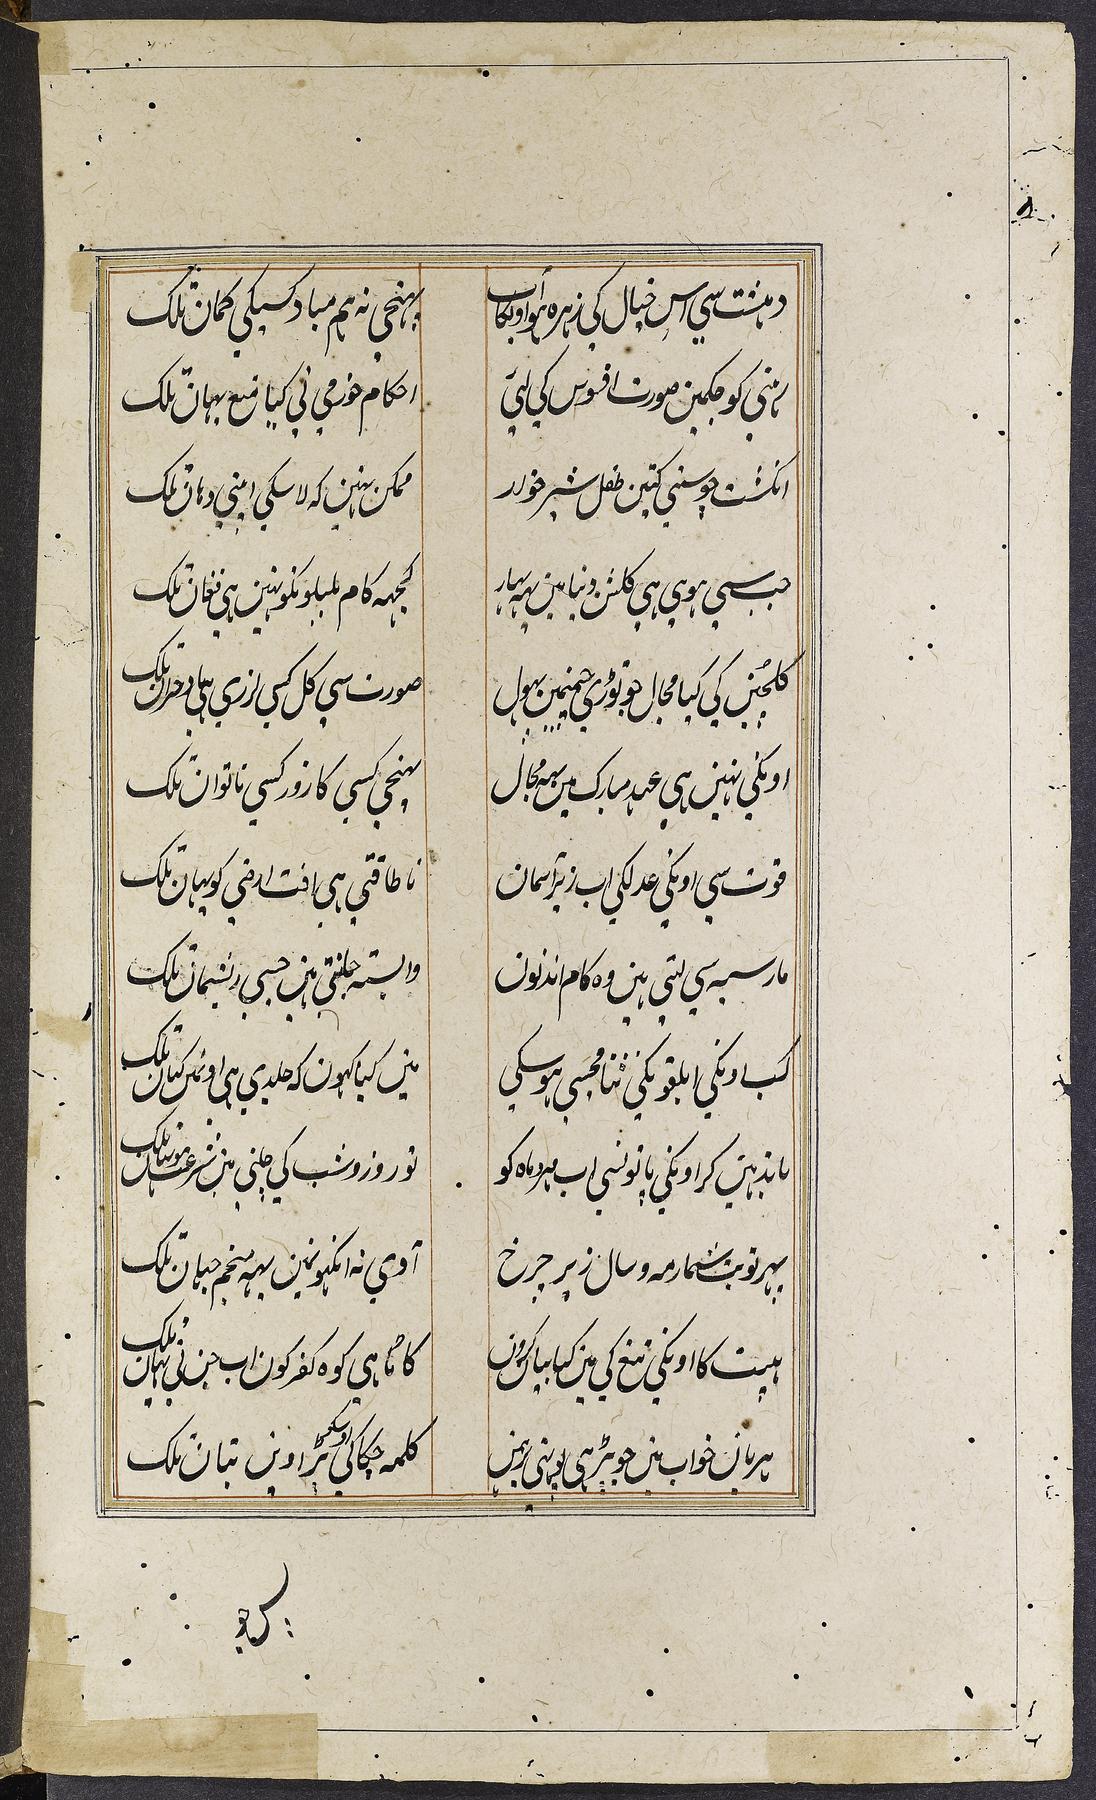 دہشت سی اس خیال کی زہرہ ہوا اونکا آب
پہنچی نہ ہم مبادکسیکی کمان تلک
رہنی کو جکمین صورت افسوس کی لئی
احکام خورمی نی کیا منع یہان تلک
انکشت چوسنی کتین طفل شیر خوار
ممکن نہین کہ لاسکی اپنی دہان تلک
جب سی ہوی ہی کلشن دنیا مین یہہ بہار
کچہہ کام بلبلونکو نہین ہی فغان تلک
کلچین کی کیا مجال جو توڑی چمنمین پہول
صورت سی کل کی لرزی ہی باد خزان تلک
اونکی نہین ہی عہد مبارک مین یہہ مجال
پہنچی کسی کا زور کسی ناتوان تلک
قوت سی اونکی عدلکی اب زیر آسمان
ناطاقتی ہی افت ارضی کو یہان تلک
مار سیہ سی لیتی ہین وہ کام اندنون
وابستہ جانتی ہین جسی ریسمان تلک
کب اونکی ابلقونکی ثنا مجسی ہوسکی
مین کیا کہون کہ جلدی ہی اونمین کہان تلک
باندہین کر اونکی پانونسی اب مہر و ماہ کو
نور روز و شب کی چلنی مین سرعت ہو یہان تلک
پہر نوبت شمار مہ و سال زیر چرخ
آوی نہ انکہونمین یہہ منجم جہان تلک
ہیبت کا اونکی تیغ کی مین کیا بیان کرون
کاٹا ہی کوہ کفر کون اب جن نی یہان تلک
ہربان خواب مین جو بڑہی
کلمہ چکا کی اوسکی پڑاوین بتان تلک
کر جو